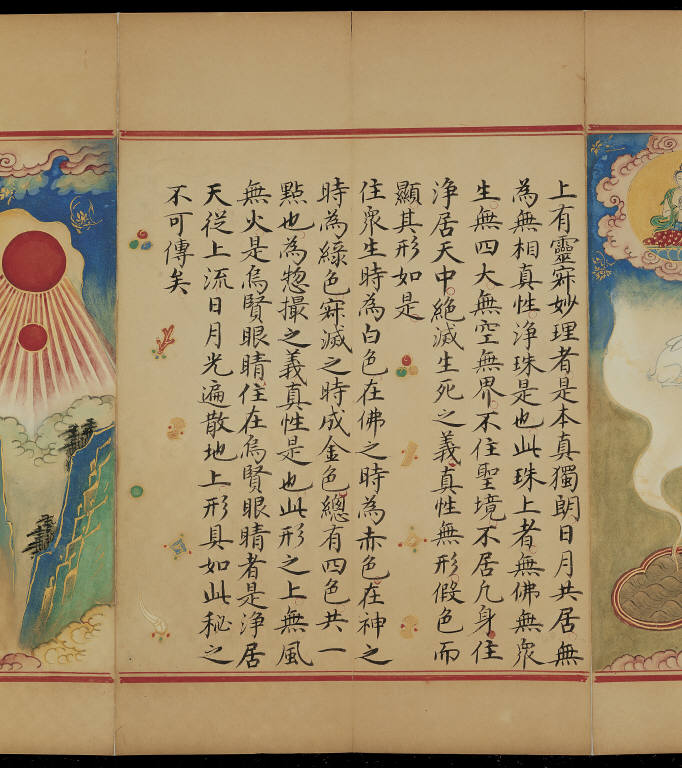 上有靈寂妙理者是本真獨朗日月共居無
為無相真性淨珠是也此珠上者無佛無眾
生無四大無空無界不住聖境不居凡身住
淨居天中絕滅生死之義真性無形假色而
顯其形如是
住眾生時為白色在佛之時為赤色在神之
時為綠色寂滅之時成金色總有四色共一
點也為惣攝之義真性是也此形之上無風
無火是烏賢眼睛住在烏賢眼睛者是淨居
天從上流日月光遍散地上形具如此秘之
不可傳矣